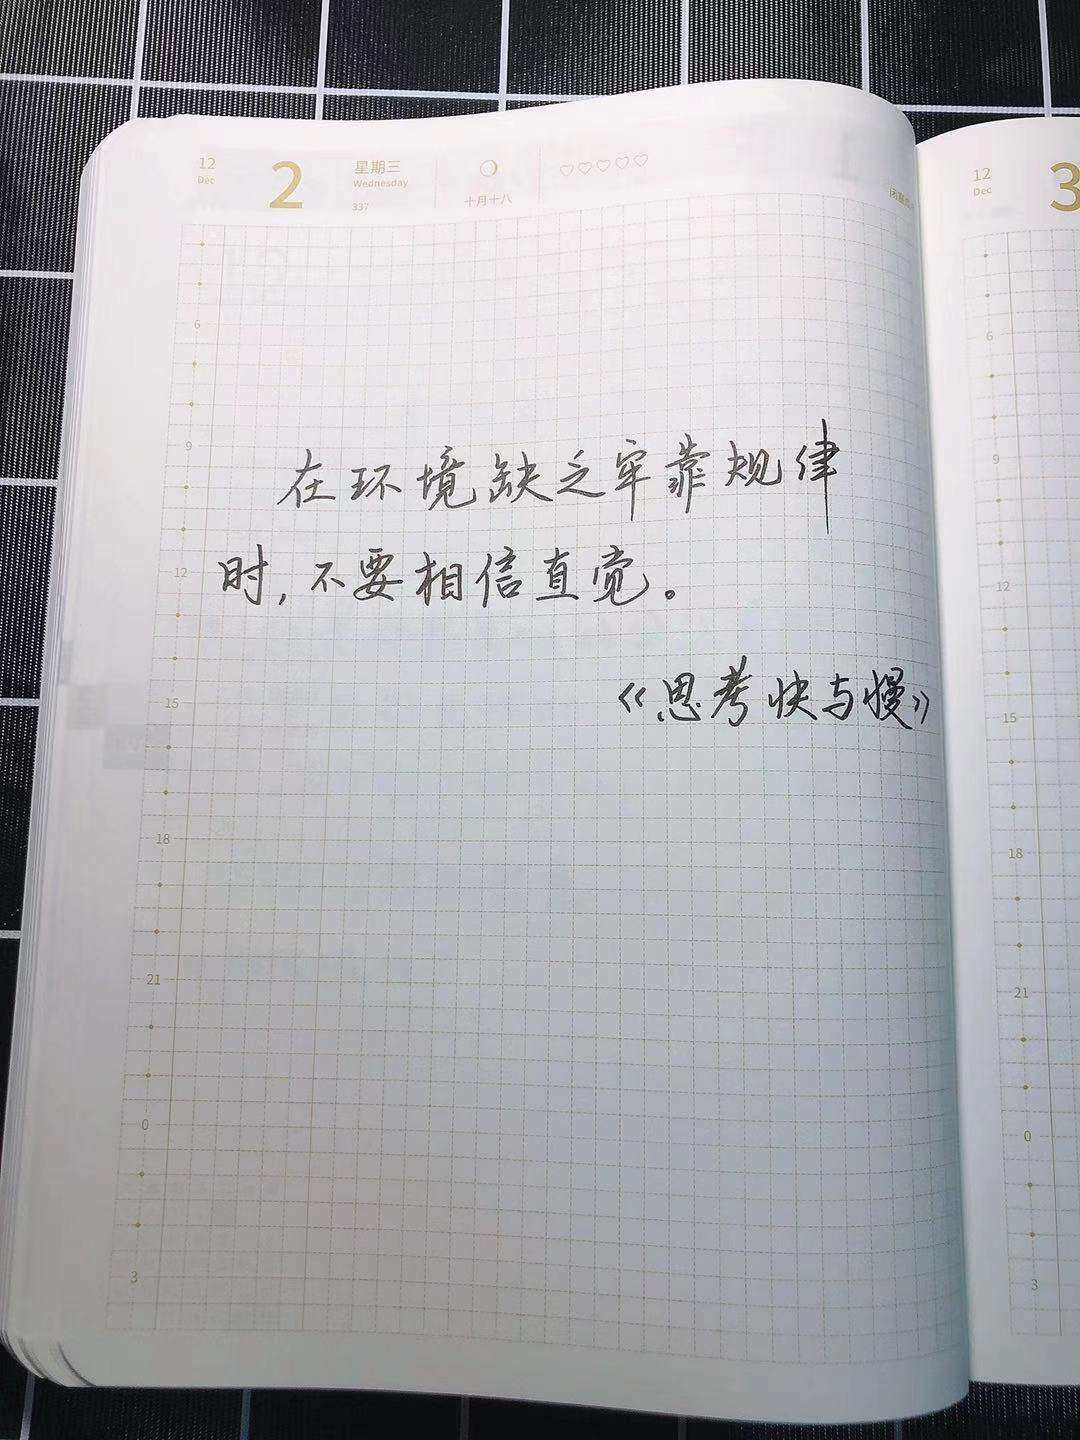 12
Dec
2
星期三
Wednesday
337
十月十八
12
Dec
3
在环境缺乏牢靠规律
时,不要相信直觉。
《思考快与慢》
6
9
12
15
18
21
0
3
6
9
12
15
18
21
0
3